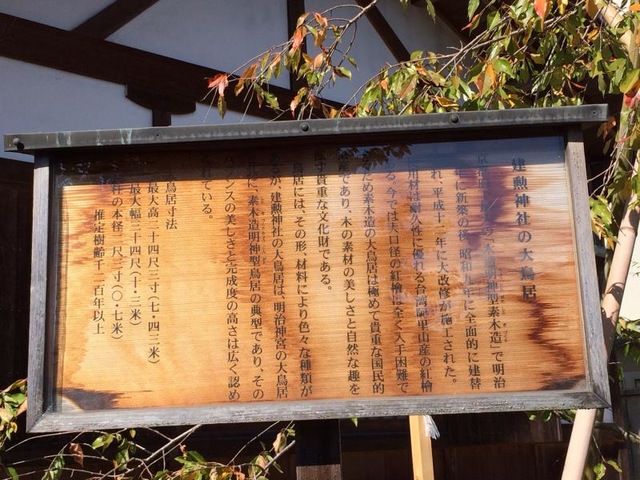 建勲神社の大鳥居
「素木明神型素木造」で明治
に新築の後、昭和九年に全面的に建替
れ、平成十二年に大改修が施こされた。
用材は耐久性に優れる台湾阿里山産の紅檜
る。今では大口径の紅檜は全く入手困難で
ため素木造の大鳥居は極めて貴重な国民的
産であり、木の素材の美しさと自然な趣を
貴重な文化財である。
鳥居には、その形、材料により色々な種類が
が、建勲神社の大鳥居は、明治神宮の大鳥居
に、素木造明神型鳥居の典型であり、その
ランスの美しさと完成度の高さは広く認め
れている。
鳥居寸法
最大高二十四尺三寸(七・四三米)
最大幅三十四尺(十・三米)
柱の本径二尺三寸(〇・七米)
推定樹齢千二百年以上